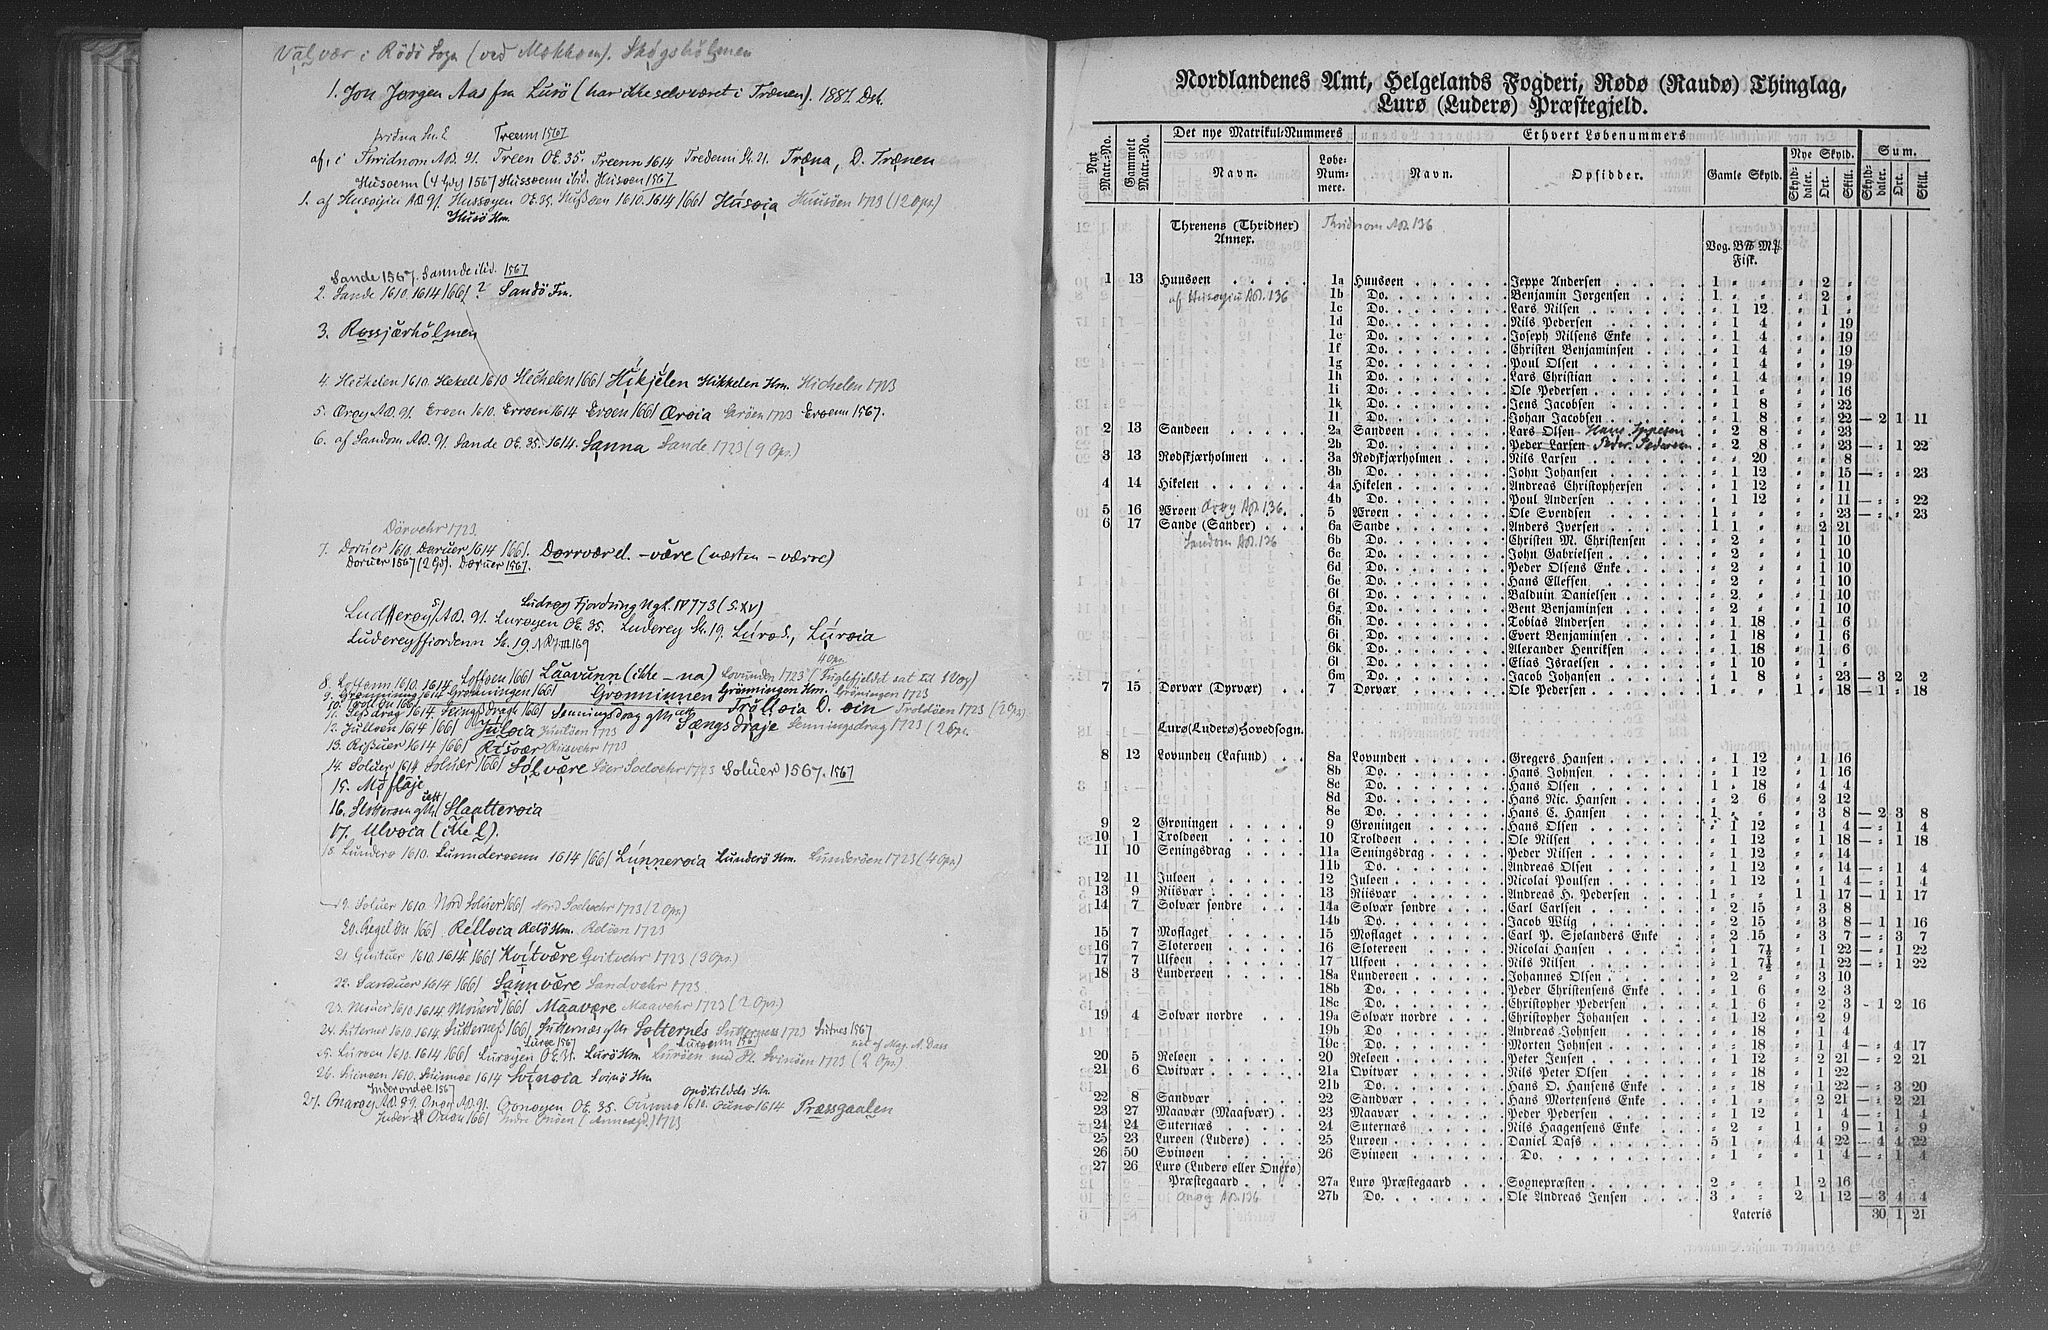 Valvær i Rödö Sogn (ved Mokhom). Skogsholmen
1. Jon Jørgen Aas fra Lurö (har ikke selv været i Trænen). 1887. Dsk.
Treenn 1567
af, i Thridnom AB. 91. Treen OE. 35. Treenn 1614 Tredemi St. 21. Træna, D. Trænen
Husoenn (4 Gd) 1567 Hussoenn ibid. Husoen 1567
1. af Husøyiu AB 91. Hussøyen OE. 35. Hußøen 1610. 1614 1661 Húsøia Huusöen 1723 (12 Ops.)
Husö Hm.
Sande 1567. Sannde ibid. 1567
2. Sande 1610. 1614 1661 ? Sandö Fm.
3. Rossjærhólmen
4. Hechelen 1610. Hekell 1610 Hechelen 1661 Hikjelen Hikkelen Hm. Hichelen 1723
5. Ørøy AB. 91. Erøen 1610. Errøen 1614 Erøen 1661 Ærøia Særöen 1723 Erøenn 1567.
6. af Sandom AB. 91. Sande OE. 35. 1614. Sanna Sande 1723 (9 Ops.)
Dörvehr 1723.
7. Doruer 1610. Doruer 1614 1661. Dorrvær el. -være (næsten -værre)
Doruer 1567 (2 Gd). Døruer 1567.
Ludrøy Fjordung NgL. IV 773 (S. XV)
Ludherøy AB. 91. Lurøyen OE. 35. Luderey St. 19. Lúrød., Lúrøia
Ludereyffiordenn St. 19.
4 Ops.
8. Lofonn 1610. 1614. Loffoen 1661 Laavunn (ikke -na) Lovunden 1723 (Fuglefieldet sat til 1 Vog)
9. Grønning 1610 1614 Grønningen 1661 Grønninnen Grönningen Hm. Gröningen 1723
10. Trollöu 1661 Trólløia D. øin Troldöen 1723 (2 Ops)
11. Seßdrag 1614. Seingsdragh 1661 Senningsdrag Sængsdraje Senningsdrag 1723 (2 Ops.
12. Julløen 1614 1661 Júløia Juulöen 1723
13. Rißuer 1614 1661 Risvær Riisvehr 1723
14. Soluer 1614 Soluær 1661 Sólvære Sör Soelvehr 1723 Soluer 1567. 1567
15. Mosflaje
16. Slotterøen Slaatterøia
17. Ulvøia (ikke l).
18. Lunderø 1610. Lunnderøenn 1614 1661 Lúnnerøia Lunderö Hm. Lunderöen 1723 (4 Ops)
19. Soluer 1610. Nord Soluer 1661 Nord Soelvehr 1723 (2 Ops.)
20. Regel Ön 1661 Relløia Relö Hm. Relöen 1723
21 Guituer 1610. 1614 1661 Kvitvære Gvitvehr 1723 (3 Ops.)
22. Sanduer 1614 1661 Sannvære Sandvehr 1723.
23. Mouer 1610. 1614. Mouerd 1661 Maavære Maavehr 1723 (2 Ops.)
24. Sutternes 1610. 1614. Sutterneß 1661 Sutternæs Sótternes Sutternæss 1723 Sutnes 1567
Luröe 1567 Luroenn 1567 eiet af Mag. A. Dass
25. Lurøen 1610. 1614 1661 Lurøyen OE. 31. Lurö Hm. Luröen med Pl. Svinöen 1723 (2 Ops.)
26. Suinøen 1610. Suinnøe 1614 Svinøia Svinö Hm.
Inderonöe 1567
27. Onarøy AB. 89. Onøy AB. 91. Oonøyen OE. 35. Ounnø 1610. Ounø 1614 Præssgaalen
Inder Onön 1661 Indre Onöen (Annexgd.) 1723
Nordlandenes Amt, Helgelands Fogderi, Rødø (Raudø) Thinglag,
Lurø (Luderø) Præstegjeld.
Nyt Matr.-No. Gammelt Matr.-No. Det nye Matrikul-Nummers Ethvert Løbenummers Sum.
Navn. Løbe-Nummere. Navn. Opsidder. Gamle Skyld. Nye Skyld. Skyldbaler. Ort. Skill. Skyldbaler. Ort. Skill.
Threnens (Thridner) Annex. Thridnom AB. 136
Vog. Bß Mß. Fisk.
1 13 Huusøen 1a Huusøen Jeppe Andersen 1 " " " 2 "
af Husøyiu AB. 136 1b Do. Benjamin Jørgensen 1 " " " 2 "
1c Do. Lars Nilsen " 1 12 " 1 "
1d Do. Nils Pedersen " 1 4 " " 19
1e Do. Joseph Nilsens Enke " 1 4 " " 19
1f Do. Christen Benjaminsen " 1 4 " " 19
1g Do. Poul Olsen " 1 4 " " 19
1h Do. Lars Christian " 1 4 " " 19
1i Do. Ole Pedersen " 1 " " " 16
1k Do. Jens Jacobsen " 1 8 " " 22
1l Do. Johan Jacobsen " 1 8 " " 22 — 2 1 11
2 13 Sandøen 2a Sandøen Lars Olsen Hans Jppesen " 2 8 " " 23
2b Do. Peder Larsen Peder Pedersen " 2 8 " " 23 — " 1 22
3 13 Rødskjærholmen 3a Rødskjærholmen Nils Larsen " " 20 " " 8
3b Do. John Johansen " 1 12 " " 15 — " " 23
4 14 Hikelen 4a Hikelen Andreas Christophersen " 1 12 " " 11
4b Do. Poul Andersen " 1 12 " " 11 — " " 22
5 16 Ærøen Ørøy AB. 136. 5 Ærøen Ole Svendsen 1 " " " " 23 — " " 23
6 17 Sande (Sander) 6a Sande Anders Iversen 1 1 " " 2 21
Sandom AB. 136 6b Do. Christen M. Christensen " 2 " " 1 10
6c Do. John Gabrielsen " 2 " " 1 10
6d Do. Peder Olsens Enke " 2 " " 1 10
6e Do. Hans Ellefsen " 2 " " 1 10
6f Do. Balduin Danielsen " 2 " " 1 10
6g Do. Bent Benjaminsen " 2 " " 1 10
6h Do. Tobias Andersen " 1 18 " 1 6
6i Do. Evert Benjaminsen " 1 18 " 1 6
6k Do. Alexander Henriksen " 1 18 " 1 6
6l Do. Elias Israelsen " 1 10 " 1 "
6m Do. Jacob Johansen " 1 8 " " 23 — 3 2 2
7 15 Dørvær (Dyrvær) 7 Dørvær Ole Pedersen 1 " " 1 " 18 — 1 " 18
Lurø (Luderø) Hovedsogn.
8 12 Lovunden (Lafund) 8a Lovunden Gregers Hansen " 1 12 " 1 16
8b Do. Hans Johnsen " 1 12 " 1 16
8c Do. Hans Olsen 1 " 18 " 4 4
8d Do. Hans Nic. Hansen " 2 6 " 2 12
8e Do. Hans C. Hansen 1 " " " 3 8 — 2 3 8
9 2 Grøningen 9 Grøningen Hans Olsen " 1 12 " 1 4 — " 1 4
10 1 Troldøen 10 Troldøen Ole Nilsen " 1 12 " 1 18 — " 1 18
11 10 Seningsdrag 11a Seningsdrag Peder Nilsen " 1 12 " " 14
11b Do. Andreas Olsen " 1 12 " " 14 — " 1 4
12 11 Juløen 12 Juløen Nicolai Poulsen " 1 12 " 1 4 — " 1 4
13 9 Riisvær 13 Riisvær Andreas H. Pedersen 1 " " 1 1 17 — 1 1 17
14 7 Solvær søndre 14a Solvær søndre Carl Carlsen " 2 15 " 3 8
14b Do. Jacob Wiig " 2 15 " 3 8 — 1 1 16
15 7 Mosflaget 15 Mosflaget Carl P. Sjølanders Enke " 2 15 " 3 7 — " 3 7
16 7 Sloterøen 16 Sloterøen Nicolai Hansen " 1 7½ " 1 22 — " 1 22
17 7 Ulføen 17 Ulføen Nils Nilsen " 1 7½ " 1 22 — " 1 22
18 3 Lunderøen 18a Lunderøen Johannes Olsen " 2 " " 3 10
18b Do. Peder Christensens Enke " 1 6 " 2 3
18c Do. Christopher Pedersen " 1 6 " 2 3 — 1 2 16
19 4 Solvær nordre 19a Solvær nordre Christopher Johansen " 1 12 " 2 9
19b Do Andreas Johnsen " " 18 " 1 4
19c Do. Morten Johnsen " " 18 " 1 4 — " 4 17
20 5 Reløen 20 Reløen Peter Jensen " 1 12 " 2 21 — " 2 21
21 6 Qvitvær 21a Qvitvær Nils Peter Olsen " " 18 " 1 22
21b Do. Hans O. Hansens Enke " " 18 " 1 22 — " 3 20
22 8 Sandvær 22 Sandvær Hans Mortensens Enke " 1 " " 2 21 — " 2 21
23 27 Maavær (Maafvær) 23 Maavær Peder Pedersen " 1 12 " 1 4 — " 1 4
24 24 Suternæs 24 Suternæs Nils Haagensens Enke " 2 " 1 " 9 — 1 " 9
25 23 Lurøen (Luderø) 25 Lurøen Daniel Dass 5 1 " 4 4 22 — 4 4 22
26 50 Svinøen 26 Svinøen Do. " 1 " " 1 4 — " 1 4
27 26 Lurø (Luderø eller Onerø)
Præstegaard 27a Lurø Præstegaard Sognepræsten 2 " " 1 2 16
Onøy AB. 136 27b Do. Ole Andreas Jensen 3 " " 2 1 12 — 3 4 4
Lateris 30 1 21